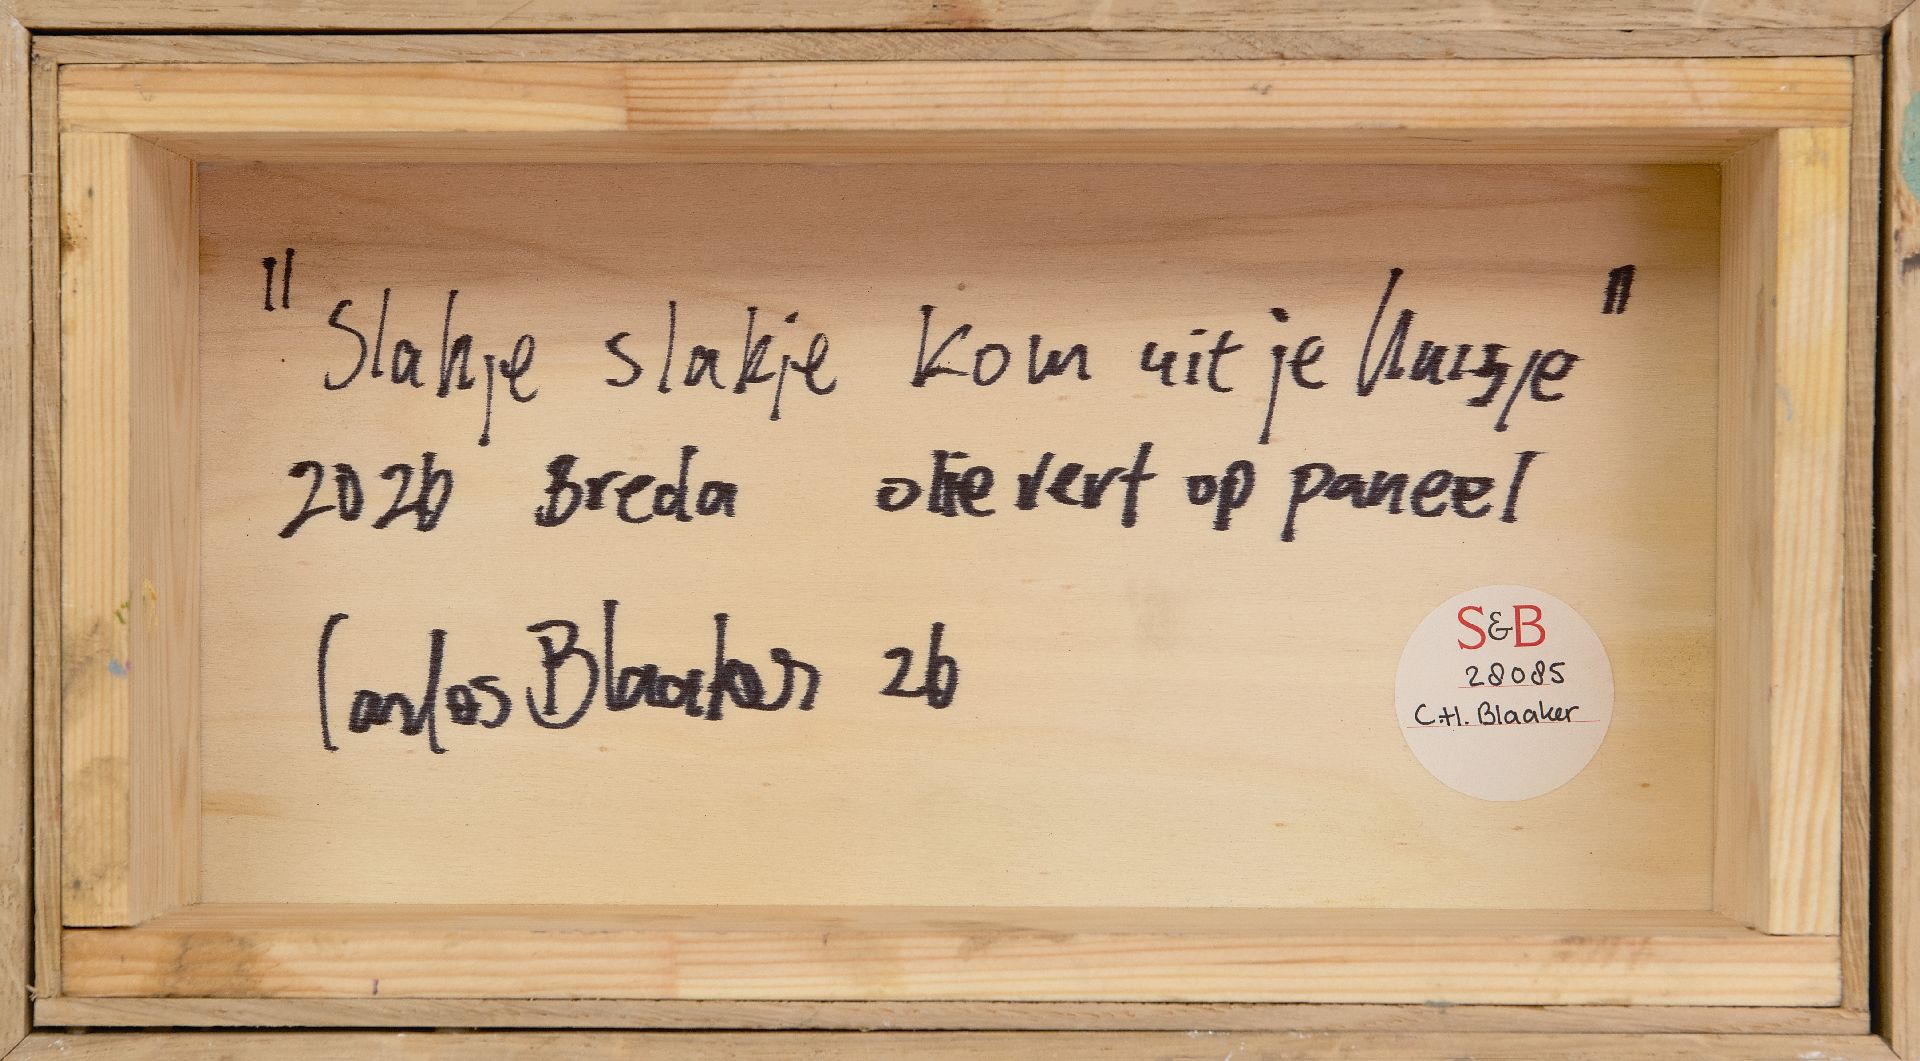 "Slakje slakje kom uit je huisje"
2026 Breda olieverf op paneel
Carlos Blaaker 26
S&B
28085
C.H. Blaaker